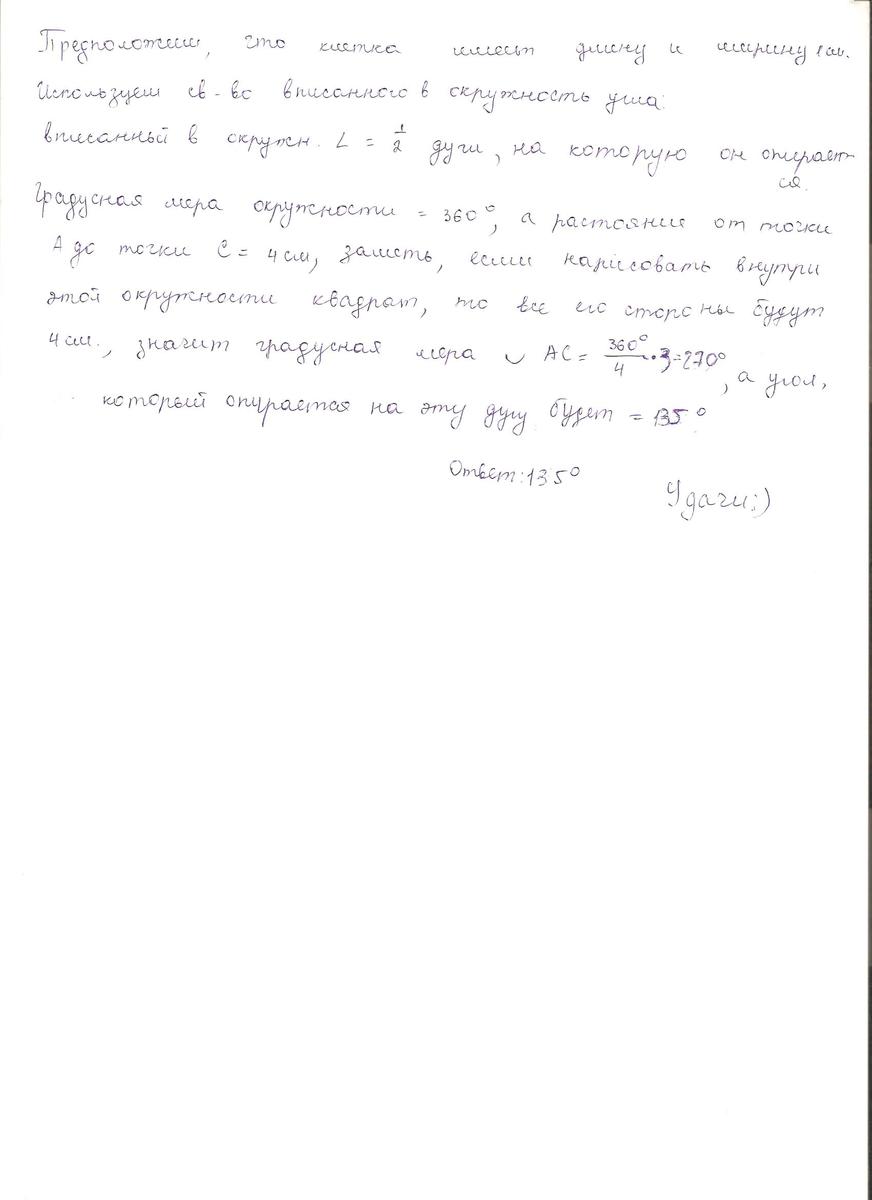 Предположим, что клетка имеет длину и ширину 1 см.
Используем св-во вписанного в окружность угла:
вписанный в окружн. ∠ = 1/2 дуги, на которую он опирает-
ся.
Градусная мера окружности = 360°, а растояние от точки
А до точки С = 4 см, заметь, если нарисовать внутри
этой окружности квадрат, то все его стороны будут
4 см., значит градусная мера ◡ АС = 360°/4 · 3 = 270°
, а угол,
который опирается на эту дугу будет = 135°
Ответ: 135°
Удачи:)